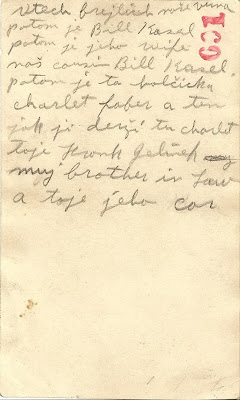 vtech brejlich naše Verna
potom je Bill Kasal
potom je jeho wife
naš cousin Bill Kasel.
potom je ta holčička
charlet faber a ten
jak ji derži tu charlet
toje Frank Jelinek
muy brother in Law
a toje jeho car